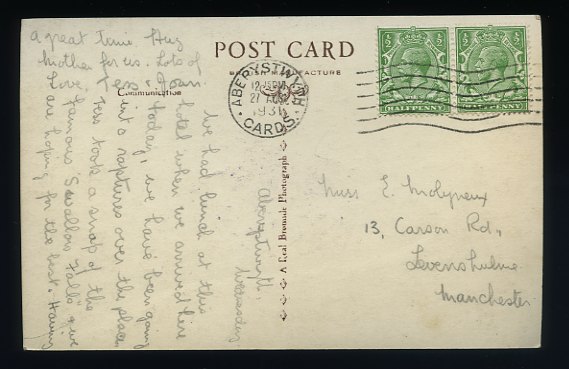 POST CARD
BRITISH MANUFACTURE
Communication
A Real Bromide Photograph
ABERYSTWYTH
12:15PM
21 AUG
1931
CARDS.
½ ½
HALFPENNY
½ ½
HALFPENNY
Aberystwyth.
Wednesday
We had lunch at this
hotel when we arrived here
today, we have been going
into raptures over the place
Tess took a snap of the
famous Swallow Falls &
are hoping for the best. Having
a great time. Hug
Mother for us. Lots of
Love, Tess & Joan.
Miss E. Molyneux
13, Carson Rd.,
Levenshulme
Manchester